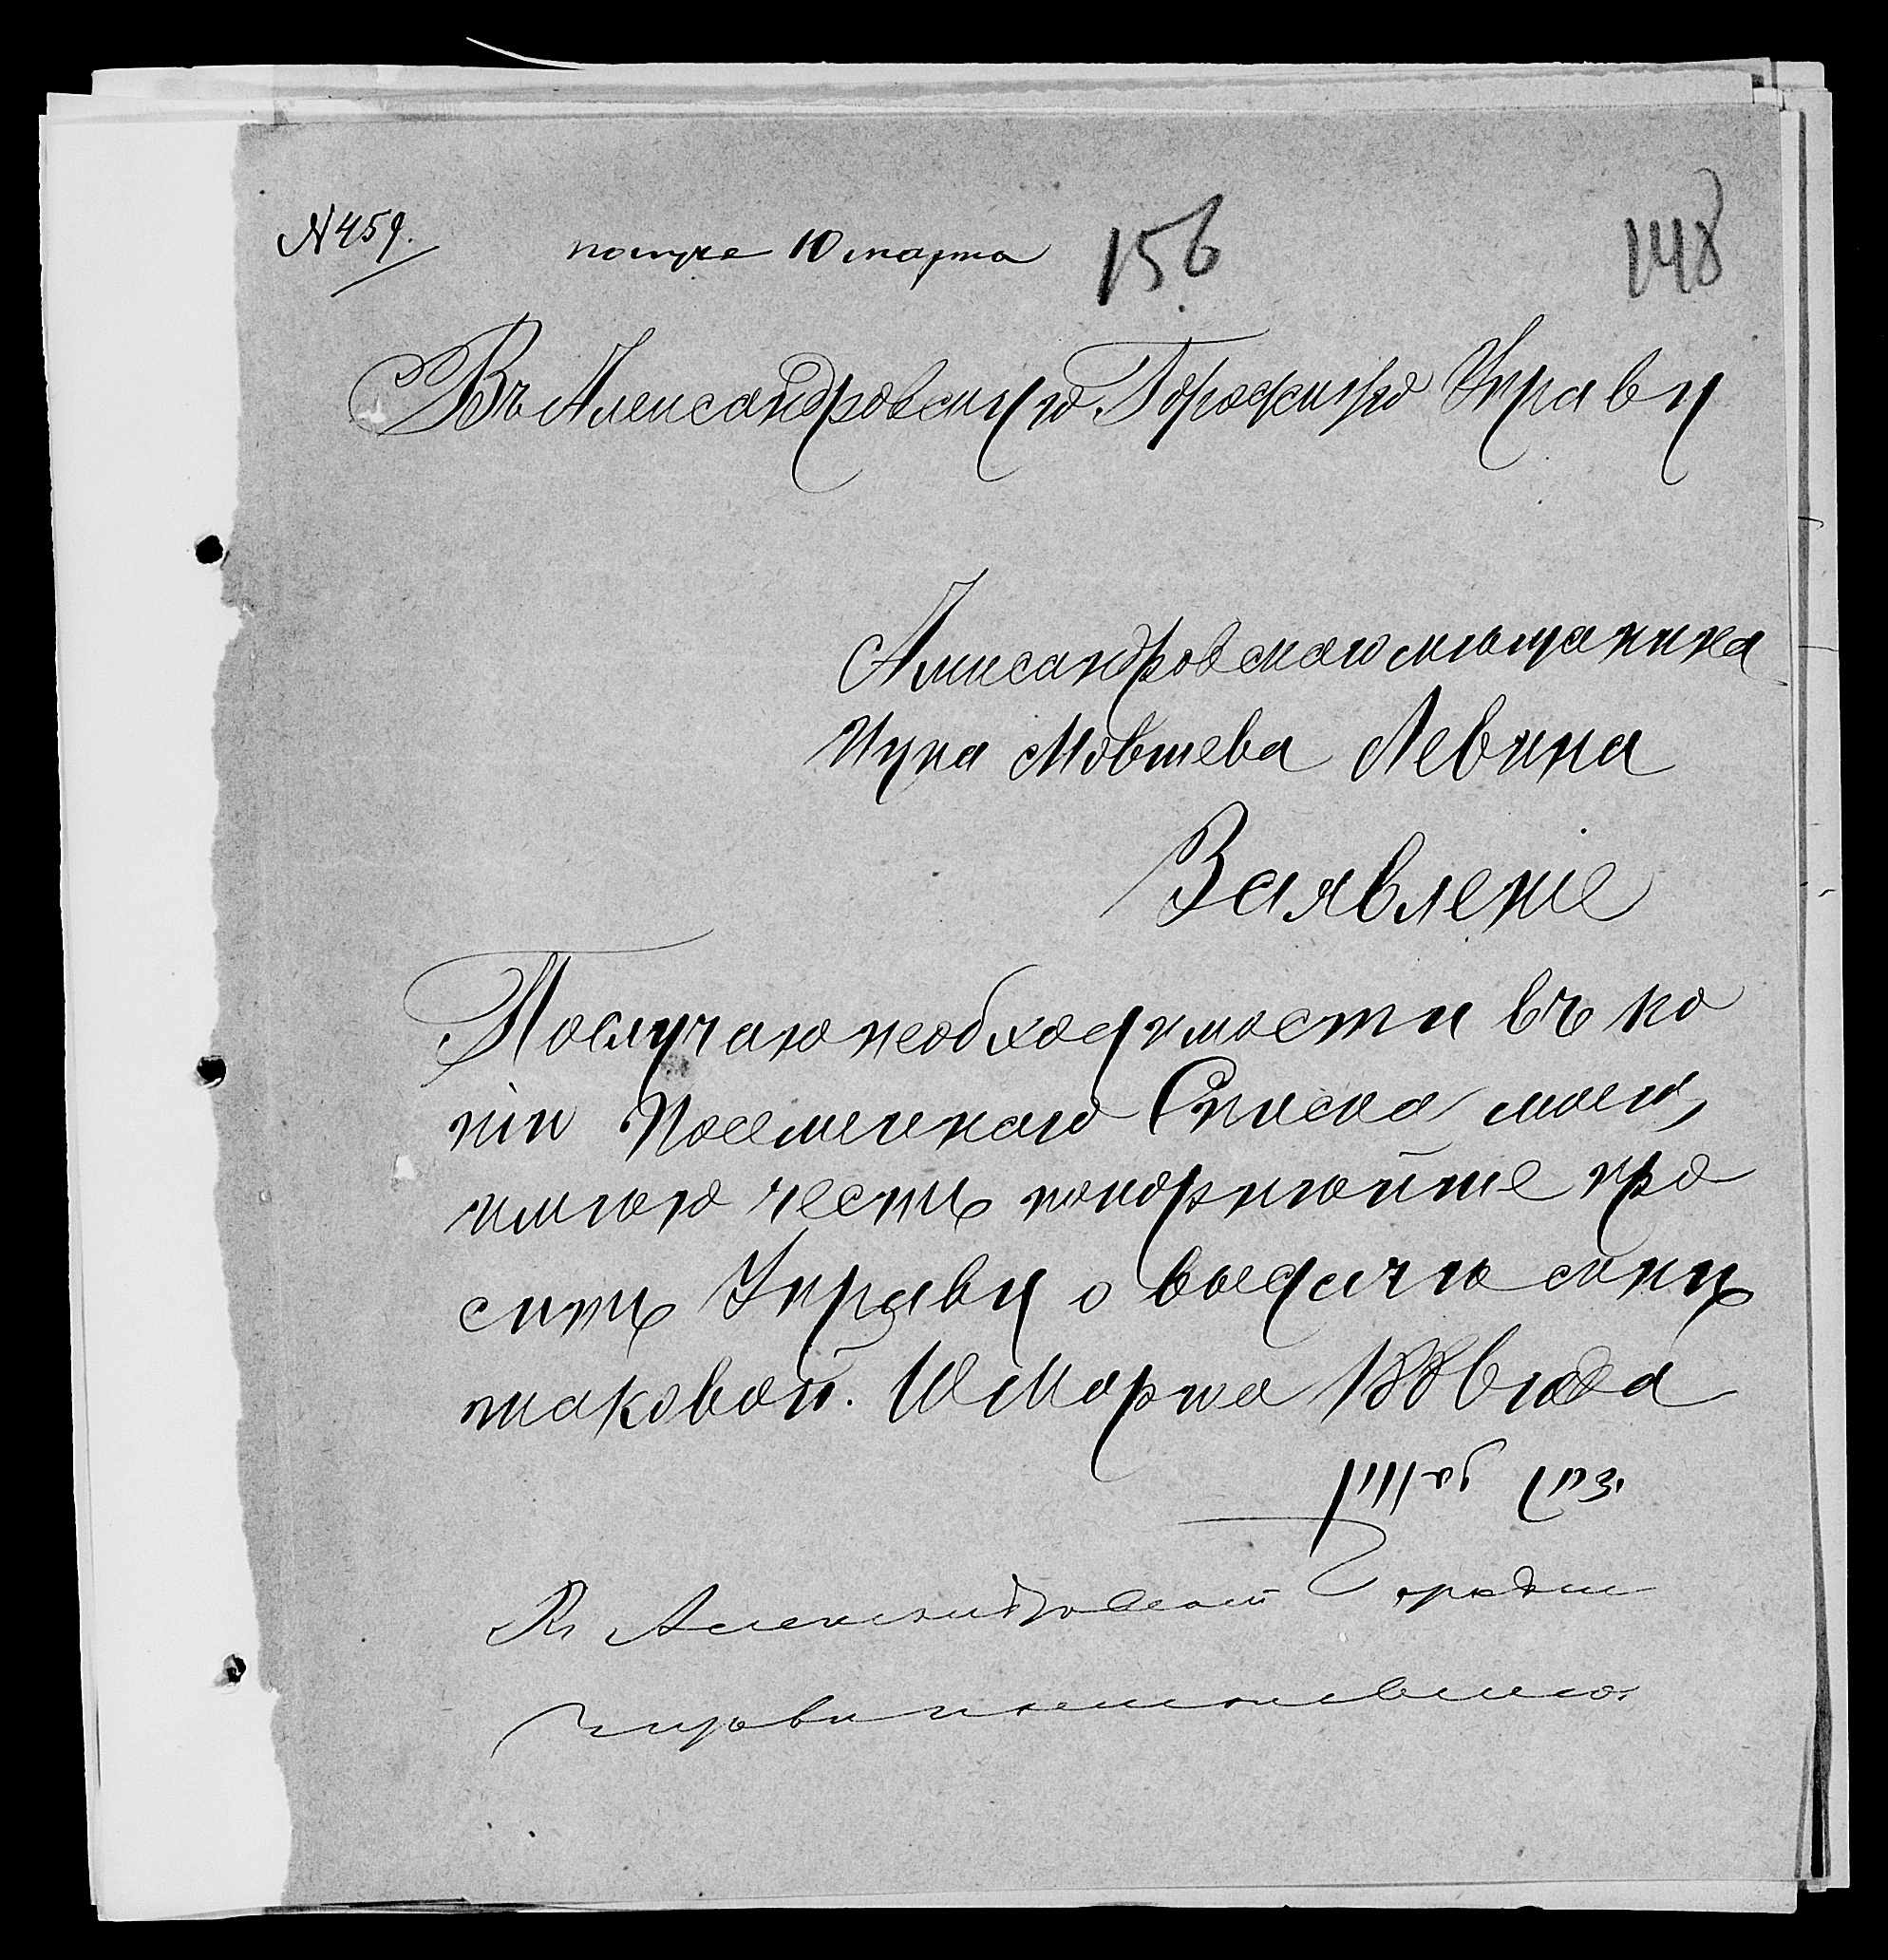 № 459.
получе 10 марта
156
148
Въ Александровскую Городскую Управу
Александровскаго мѣщанина
Ицка Мовшева Левина
Заявленіе
Послучаю необходимости въ ко
піи Посемейнаго Списка моего,
имѣю честь покорнѣйше про
сить Управу о выдачѣ мнѣ
таковой. Марта 1886 года
Къ Александровской Городск